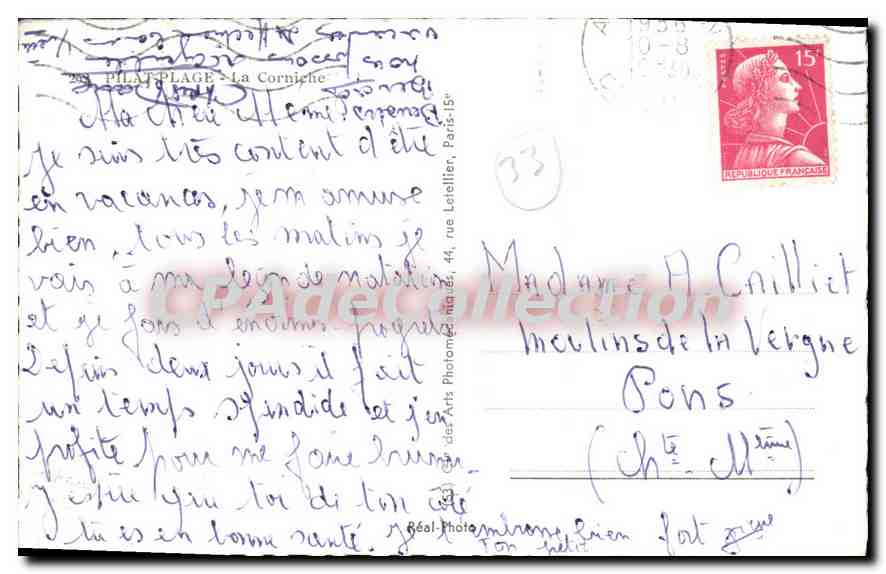 PILAT-PLAGE - La Corniche
Ma chère Mémé
je suis très content d'être
en vacances, je m'amuse
bien, tous les matins je
vais à ma leçon de natation
et je fais d'énormes progrès
Depuis deux jours il fait
un temps splendide et j'en
profite pour me faire brunir
J'espère que toi de ton côté
tu es en bonne santé. Je t'embrasse bien fort
Ton petit
Réal-Photo
des Arts Photomécaniques, 44, rue Letellier, Paris-15e
33
POSTES
15F
REPUBLIQUE FRANÇAISE
Madame A Cailliet
Moulins de la Vergne
Pons
(Chte. Mtime)
CPAdeCollection.com